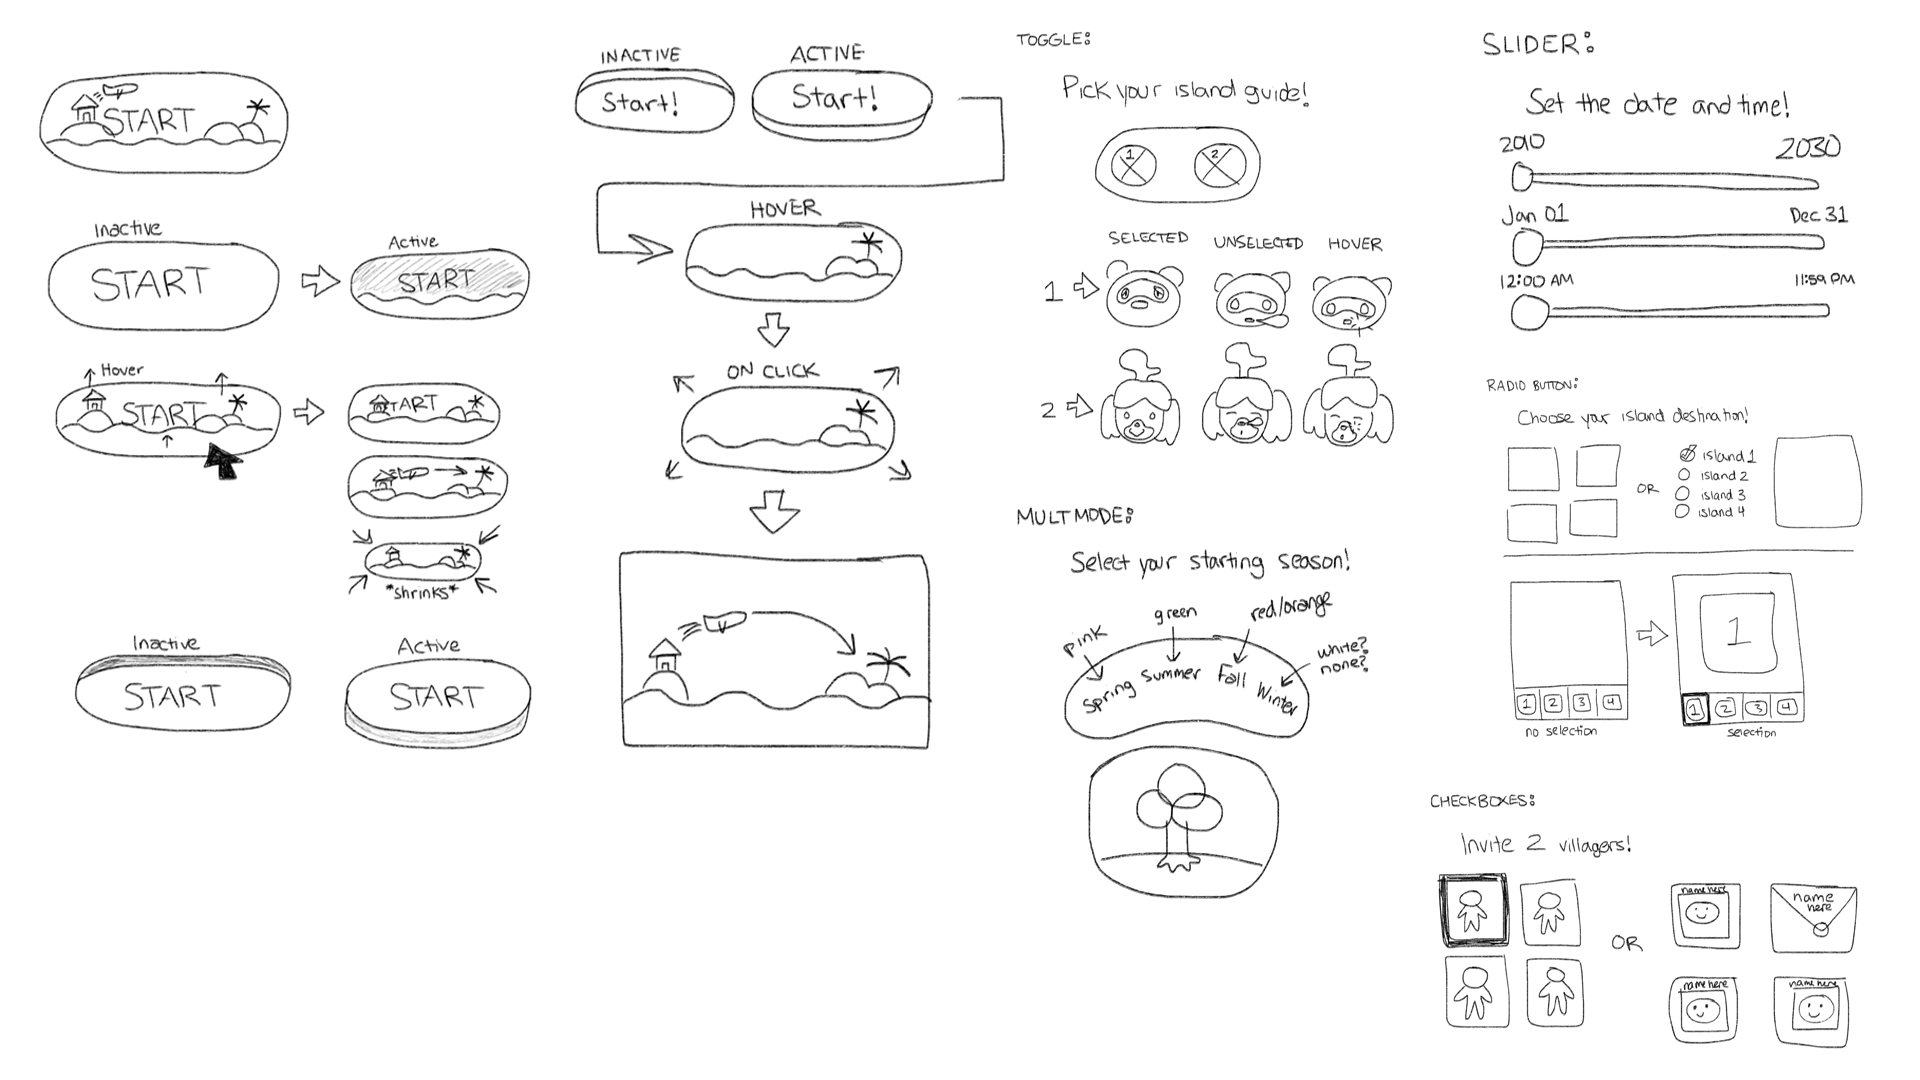 START
Inactive
START
Active
START
Hover
START
START
*shrinks*
Inactive
START
Active
START
INACTIVE
Start!
ACTIVE
Start!
HOVER
ON CLICK
TOGGLE:
Pick your island guide!
1
2
SELECTED
UNSELECTED
HOVER
1
2
MULTMODE:
Select your starting season!
pink
green
red/orange
white?
none?
Spring
Summer
Fall
Winter
SLIDER:
Set the date and time!
2010
2030
Jan 01
Dec 31
12:00 AM
11:59 PM
RADIO BUTTON:
Choose your island destination!
OR
island 1
island 2
island 3
island 4
1 2 3 4
no selection
1
1 2 3 4
selection
CHECKBOXES:
Invite 2 villagers!
OR
name here
name
here
name here
name here